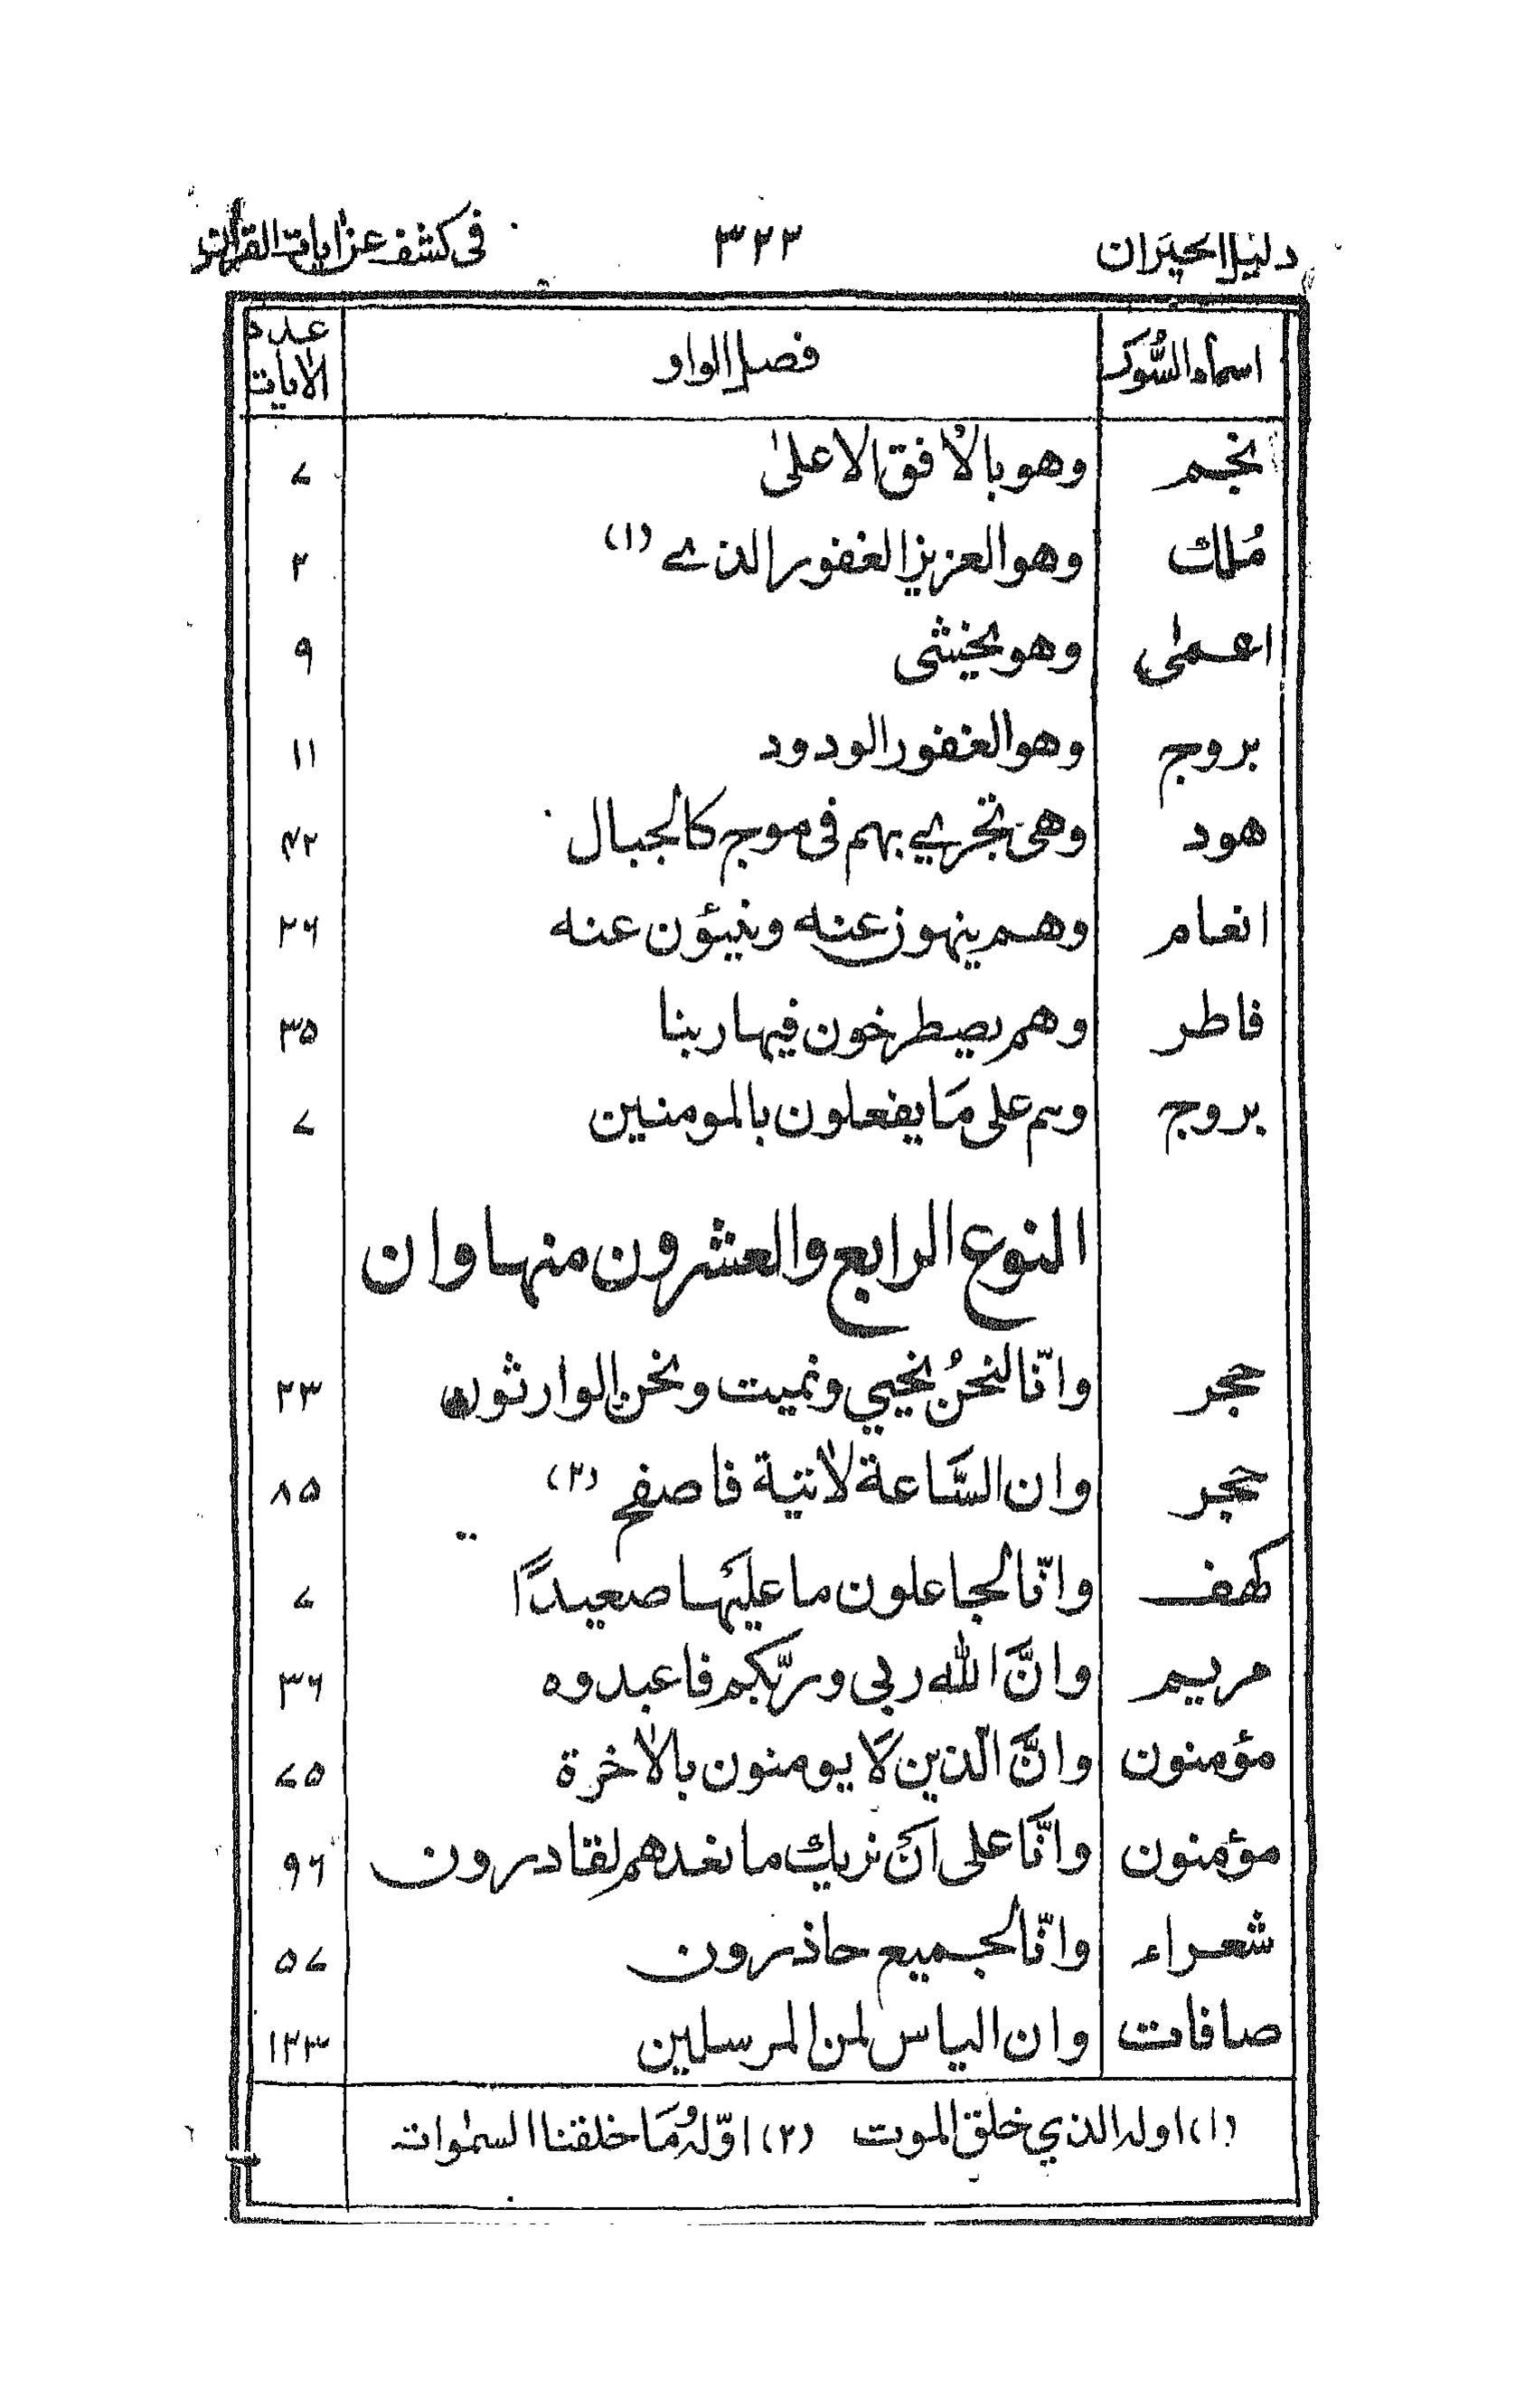 دليل الحيران ٣٢٢ في كشف عن ايات القران
اسماء السُّور فصل الواو عدد الايات
نجم وهو بالاُفق الاعلىٰ ٧
مُلك وهو العزيز الغفور الذے (١) ٢
اعمىٰ وهو يخشى ٩
بروج وهو الغفور الودود ١١
هود وهى تجري بهم فى موج كالجبال ٤٢
انعام وهم ينهون عنه وينئون عنه ٢٦
فاطر وهم يصطرخون فيها ربنا ٣٥
بروج وہم على مَا يفعلون بالمومنين ٧
النوع الرابع والعشرون منها وان
حجر وانّا لنحنُ نحيي ونميت ونحن الوارثون ٢٣
حجر وان السَّاعة لاٰتية فاصفح (٢) ٨٥
كهف وانّا لجاعلون ما عليَها صعيدًا ٧
مريم وانَّ الله ربى وربّكم فاعبدوه ٣٦
مؤمنون وانَّ الّذين لَا يومنون بالاٰخرة ٧٥
مؤمنون وانَّا على اَنْ نريك ما نعدهم لقادرون ٩٦
شعراء وانّا لجميع حاذرون ٥٧
صافات وان الياس لمن المرسلين ١٢٣
(١) اوله الذي خلق الموت (٢) اوّلهُ ومَا خلقنا السمٰوات